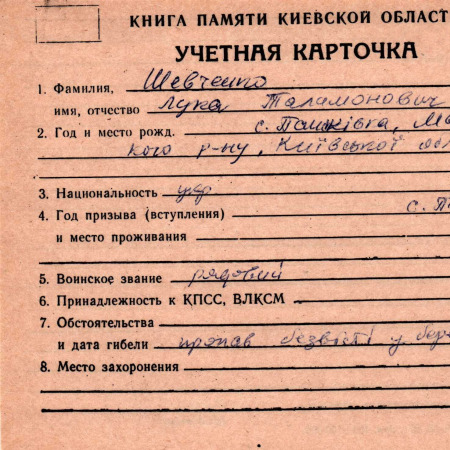 КНИГА ПАМЯТИ КИЕВСКОЙ ОБЛАСТ
УЧЕТНАЯ КАРТОЧКА
1. Фамилия, Шевченко
имя, отчество Лука Таламонович
2. Год и место рожд. с. Пашківка, Ма
кого р-ну, Київської обл
3. Национальность укр
4. Год призыва (вступления) с. П
и место проживания
5. Воинское звание рядовий
6. Принадлежность к КПСС, ВЛКСМ
7. Обстоятельства
и дата гибели пропав безвісті у
8. Место захоронения